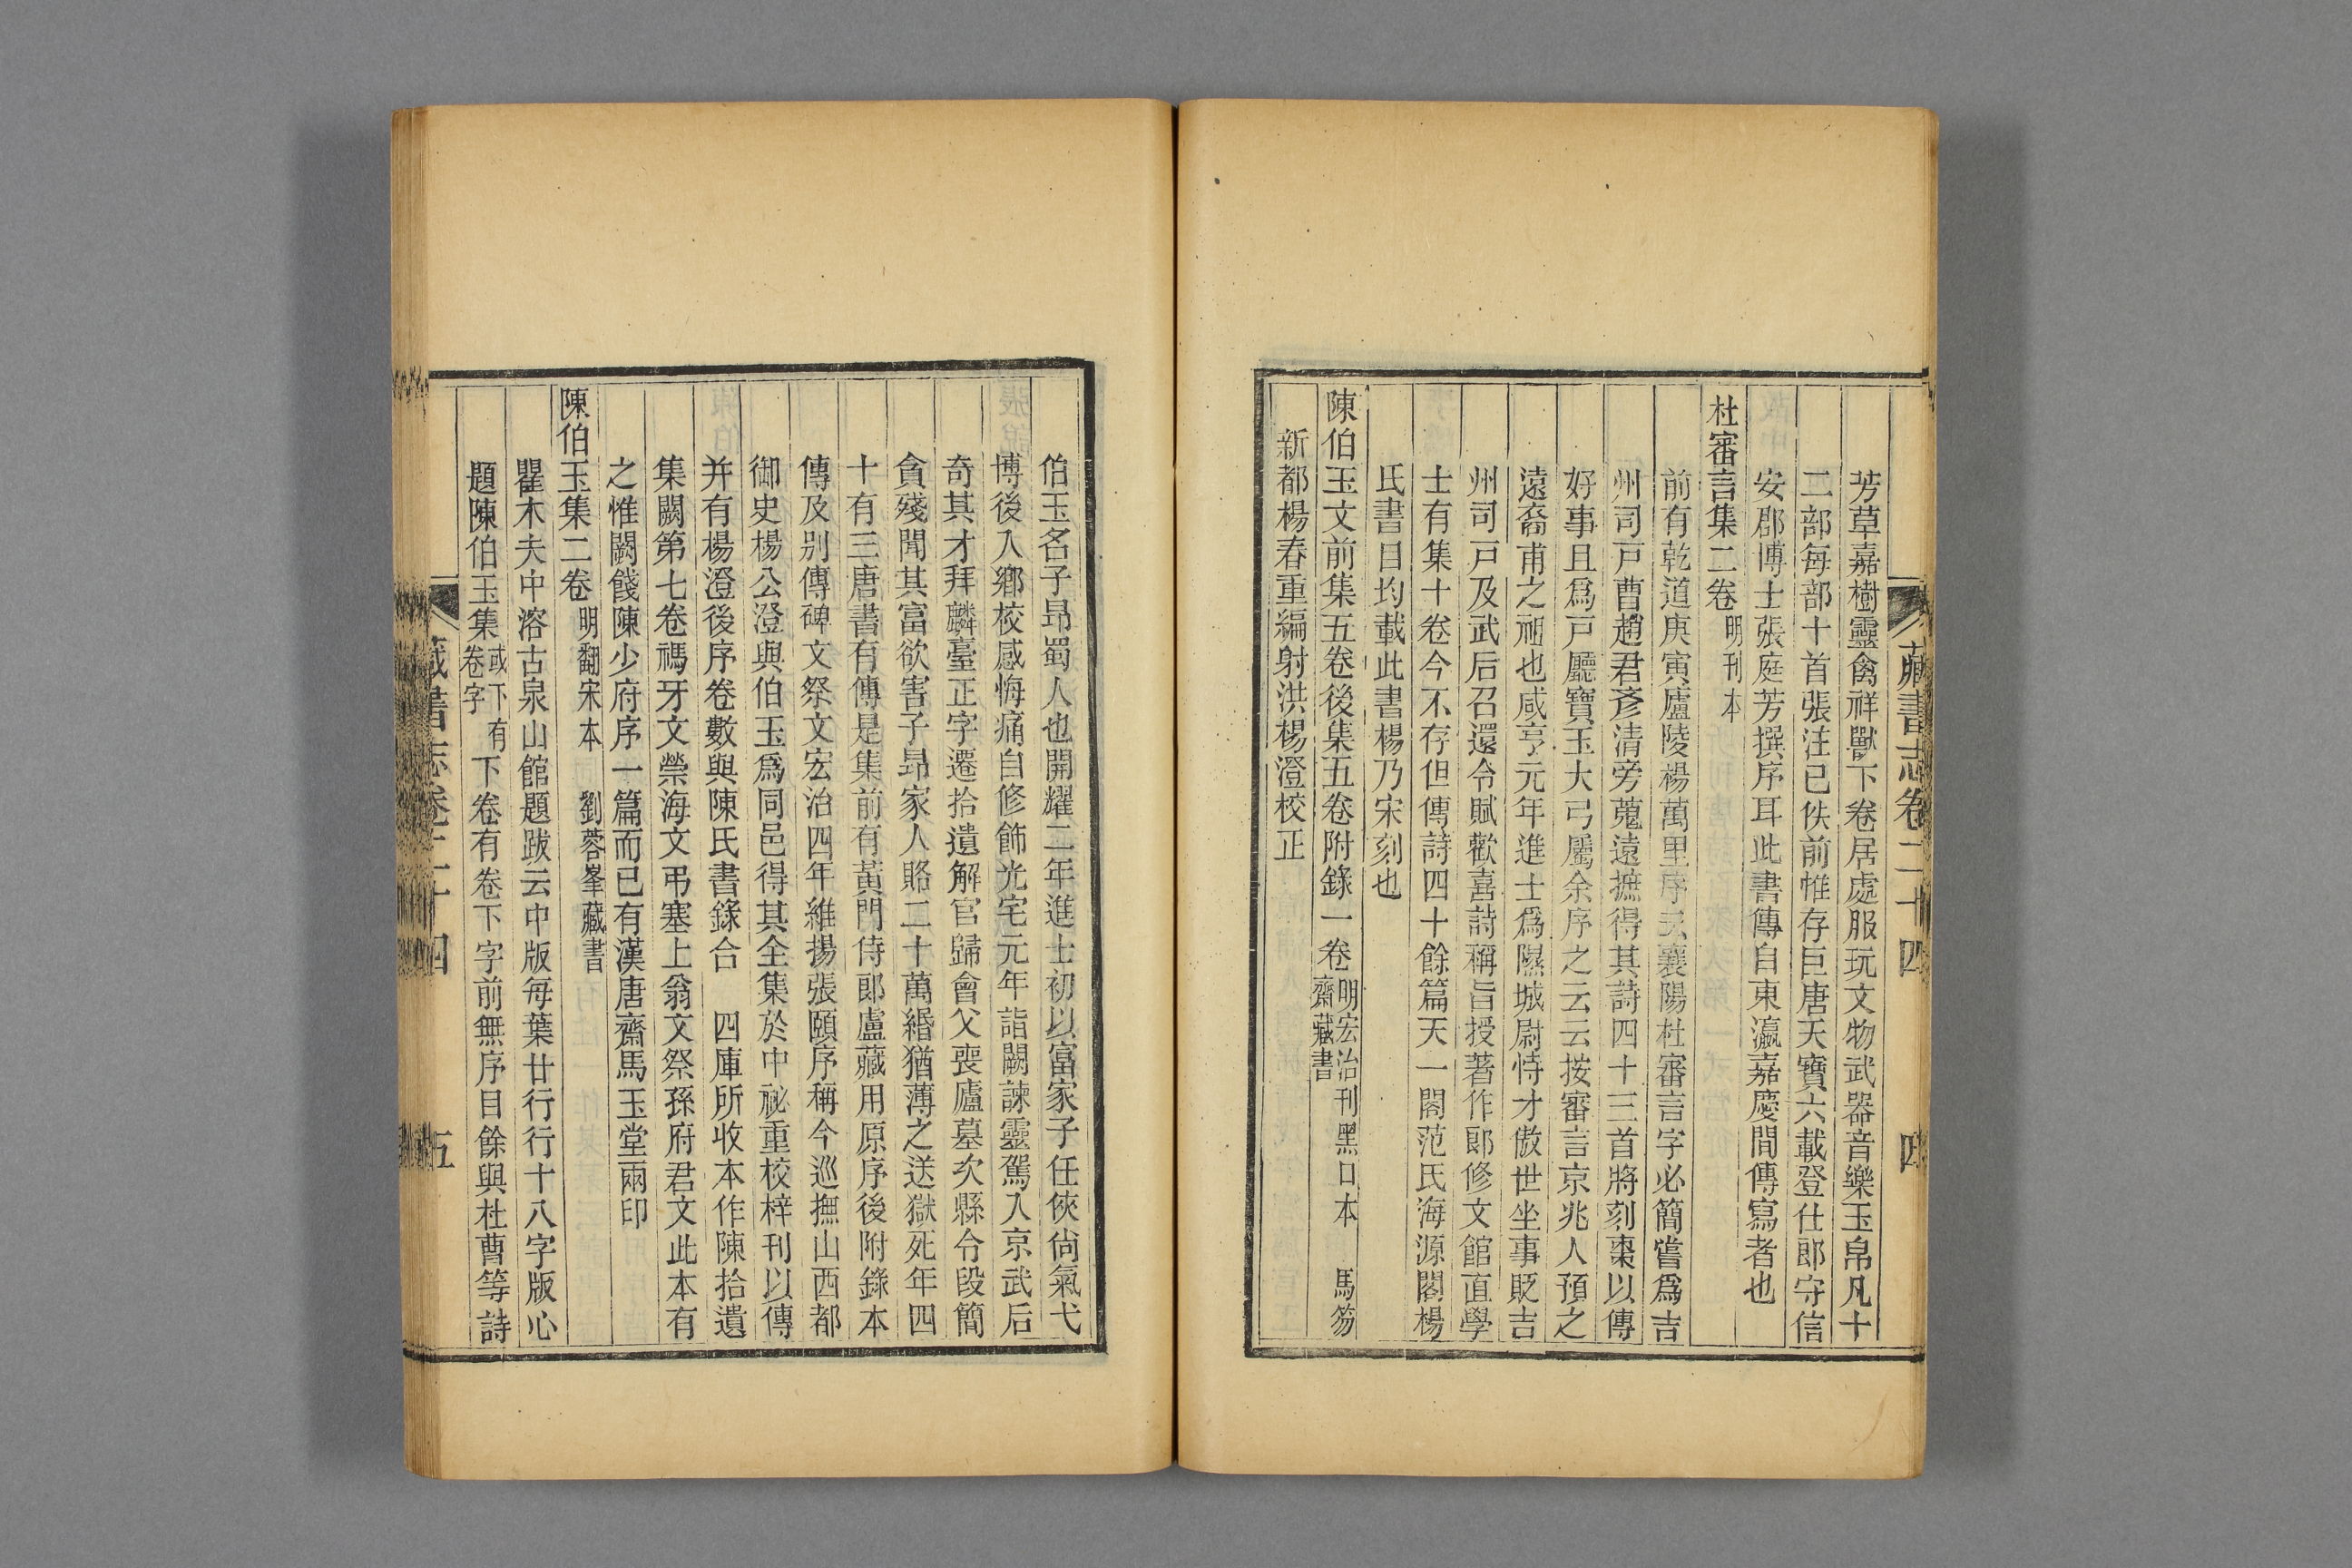 藏書志卷二十四
四
芳草嘉樹靈禽祥獸下卷居處服玩文物武器音樂玉帛凡十
二部每部十首張注已佚前惟存巨唐天寶六載登仕郎守信
安郡博士張庭芳撰序耳此書傳自東瀛嘉慶間傳寫者也
杜審言集二卷 明刊本
前有乾道庚寅廬陵楊萬里序云襄陽杜審言字必簡嘗爲吉
州司戶曹趙君彥清旁蒐遠摭得其詩四十三首將刻棗以傳
好事且爲戶廳寶玉大弓屬余序之云云按審言京兆人預之
遠裔甫之祖也咸亨元年進士爲隰城尉恃才傲世坐事貶吉
州司戶及武后召還令賦歡喜詩稱旨授著作郎修文館直學
士有集十卷今不存但傳詩四十餘篇天一閣范氏海源閣楊
氏書目均載此書楊乃宋刻也
陳伯玉文前集五卷後集五卷附錄一卷 明宏治刊黑口本 馬笏齋藏書
新都楊春重編射洪楊澄校正
伯玉名子昂蜀人也開耀二年進士初以富家子任俠尙氣弋
博後入鄉校感悔痛自修飾光宅元年詣闕諫靈駕入京武后
奇其才拜麟臺正字遷拾遺解官歸會父喪廬墓次縣令段簡
貪殘聞其富欲害子昂家人賂二十萬緡猶薄之送獄死年四
十有三唐書有傳是集前有黃門侍郎盧藏用原序後附錄本
傳及别傳碑文祭文宏治四年維揚張頤序稱今巡撫山西都
御史楊公澄與伯玉爲同邑得其全集於中祕重校梓刊以傳
并有楊澄後序卷數與陳氏書錄合 四庫所收本作陳拾遺
集闕第七卷禡牙文禜海文弔塞上翁文祭孫府君文此本有
之惟闕餞陳少府序一篇而已有漢唐齋馬玉堂兩印
陳伯玉集二卷 明翻宋本 劉蓉峯藏書
瞿木夫中溶古泉山館題跋云中版每葉廿行行十八字版心
題陳伯玉集 或下有卷字 下卷有卷下字前無序目餘與杜曹等詩
藏書志卷二十四
五